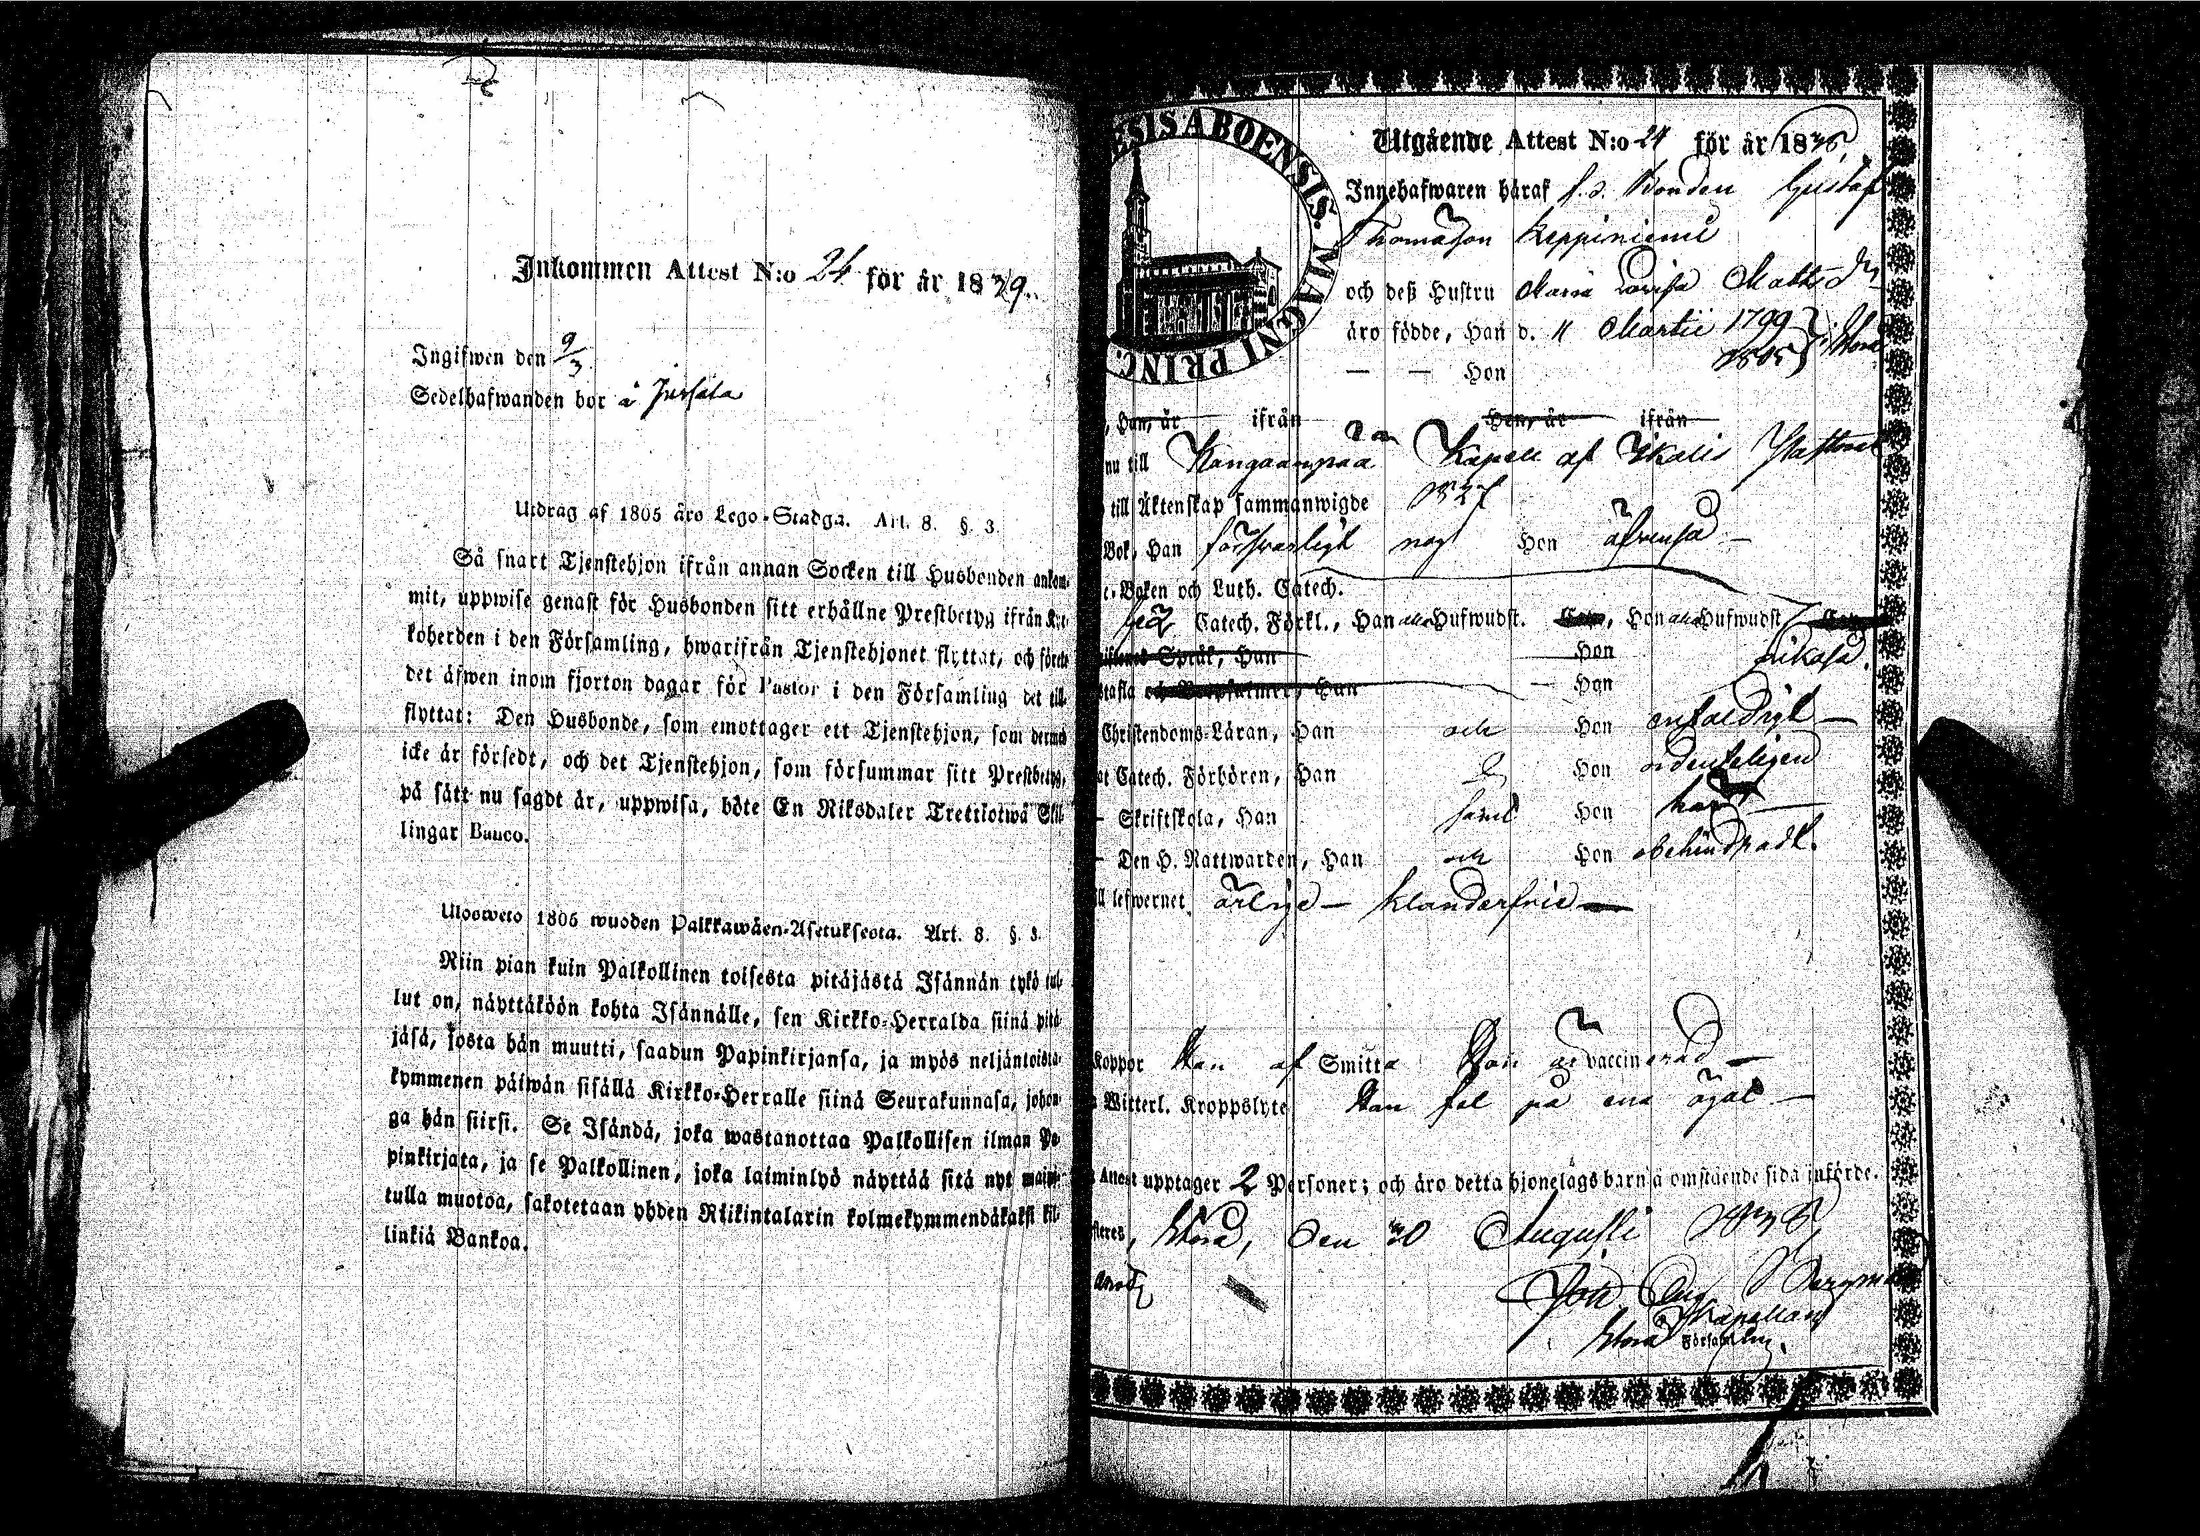 Inkommen Attest N:o 24 för år 1839.
Ingifwen den 9/3
Sedelhafwanden bor å
Utdrag af 1805 års Lego-Stadga. Art. 8. §. 3.
Så snart Tjenstehjon ifrån annan Socken till Husbonden ankom-
mit, uppwise genast för Husbonden sitt erhållne Prestbetyg ifrån Kyr-
koherden i den Församling, hwarifrån Tjenstehjonet flyttat, och förete
det äfwen inom fjorton dagar för Pastor i den Församling det till-
flyttat: Den Husbonde, som emottager ett Tjenstehjon, som dermed
icke är försedt, och det Tjenstehjon, som försummar sitt Prestbetyg,
på sätt nu sagdt är, uppwisa, böte En Riksdaler Trettiotwå Skil-
lingar Banco.
Ulosweto 1805 wuoden Palkkawäen-Asetuksesta. Art. 8. §. 3.
Niin pian kuin Palkollinen toisesta pitäjästä Isännän tykö tul-
lut on, näyttäköön kohta Isännälle, sen Kirkko-Herralda siinä pitä-
jäsä, josta hän muutti, saadun Papinkirjansa, ja myös neljäntoista-
kymmenen päiwän sisällä Kirkko-Herralle siinä Seurakunnasa, johon-
ga hän siirsi. Se Isändä, joka wastanottaa Palkollisen ilman Pa-
pinkirjata, ja se Palkollinen, joka laiminlyö näyttää sitä nyt mainit-
tulla muotoa, sakotetaan yhden Riikintalarin kolmekymmendäkaksi kil-
linkiä Bankoa.
ESIS ABOENSIS. MAGNI PRINC.
Utgående Attest N:o 24 för år 1838
Innehafwaren häraf f.d. Bonden Gustaf
Thomasson Keppiniemi
och deß Hustru Maria Lovisa Matts dr
äro födde, Han d. 11 Martii 1799
— — Hon 1805
, Han, är ifrån Hon, är ifrån
nu till Kangaanpää Kapell af Ikalis
till Äktenskap sammanwigde 1827
Bok, Han försvarligt Hon äfvenså —
e-Boken och Luth. Catech.
Catech. Förkl., Han Hufwudst. , Hon Hufwudst
Språk, Han Hon likaså.
stafla och Botpsalmer, Han — Hon
Christendoms-Läran, Han och Hon enfaldigt —
at Catech. Förhören, Han Hon ordenteligen
— Skriftskola, Han samt Hon har —
— Den H. Nattwarden, Han och Hon obehindradt.
ill lefwernet ärlige — klanderfrie —
Koppor Han af Smitta Hon är vaccinerad —
Witterl. Kroppslyte Han fel på ena ögat —
Attest upptager 2 Personer; och äro detta hjonelags barn å omstående sida införde.
fieres, Storå, den 30 Augusti 1838
Joh Bergman
Kapellan
Storå Församling.